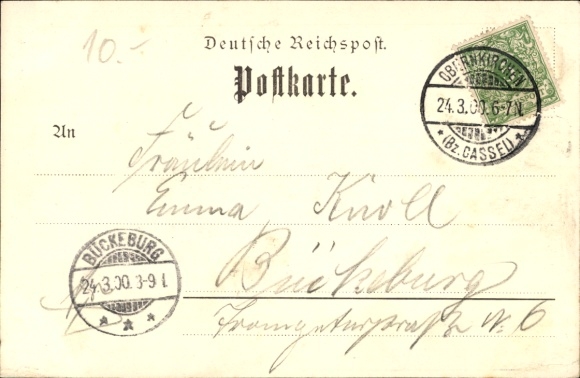 10.-
Deutsche Reichspost.
Postkarte.
OBERNKIRCHEN
24.3.00.6-7N.
* (Bz.CASSEL) *
An
Fräulein
Emma Knoll
BÜCKEBURG
24.3.00.8-9
Bückeburg
№ 6